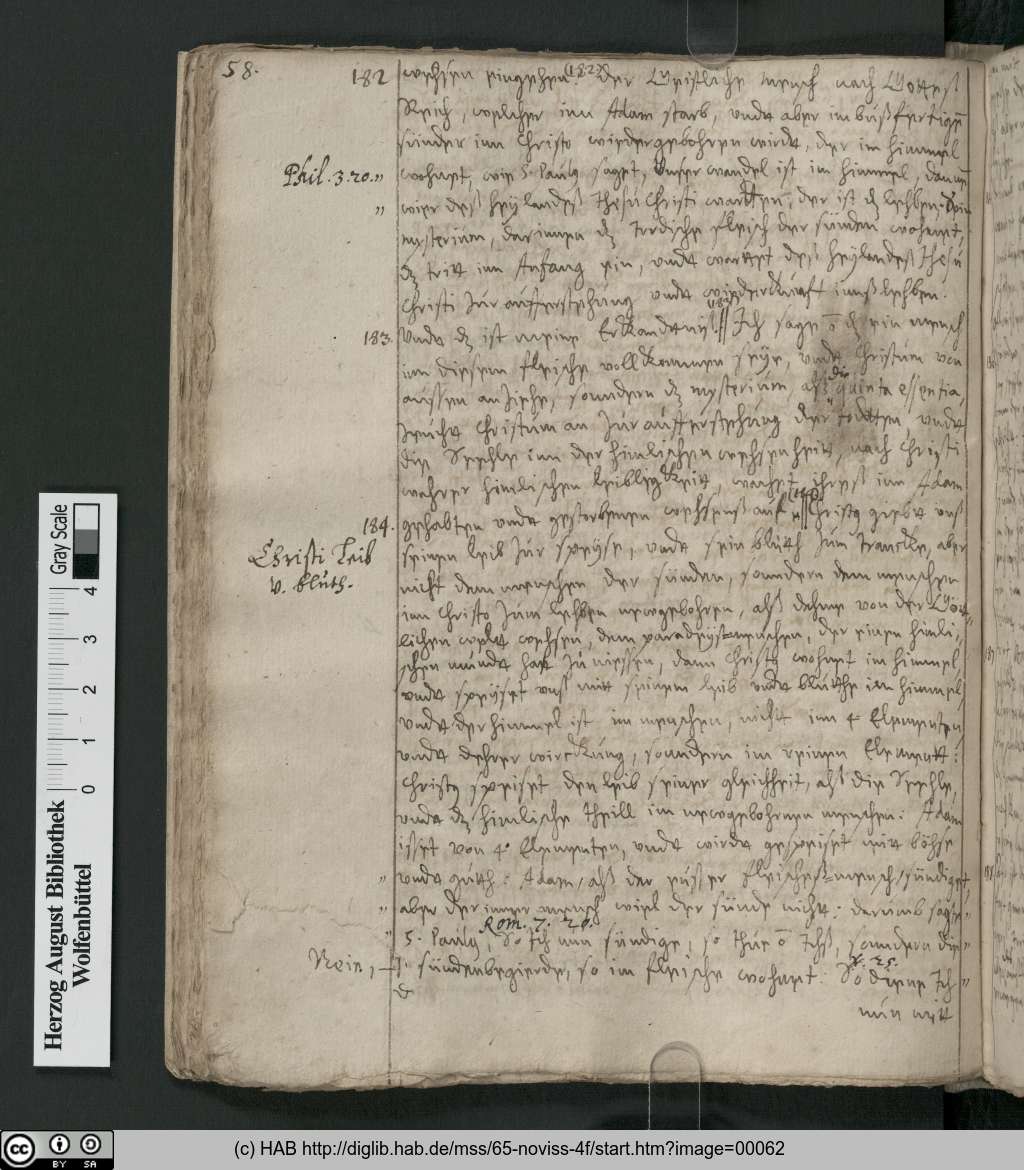 58.
182 wehsen eingehen. (182) der Geistliche mensch nach Gottes
Reich, welcher inn Adam starb, vndt aber im bußfertigen
sünder inn Christo wiedergebohren wirdt, der im himmel
Phil. 3. 20. " wohnet, wie S. Paulg saget, Vnser wandel ist im himmel, dannen
" wier deß heylandeß Jhesu Christi wartten, der ist dz lehben.
mysterium, darinnen dz Irrdische fleisch der sünden wohnet,
dz tritt inn Anfang ein, vndt wartet deß heylandeß Jhesu
Christi Zur aufferstehung vndt wiederkunfft inß lehben.
183. Vndt dz ist meine Erkandtniß. Ich sage dz ein mensch
inn diesem fleische vollkommen seye, vndt Christum von
aussen anZiehe, sondern dz mysterium, alß die quinta essentia,
Zeucht Christum an Zur aufferstehung der todtten vndt
die Seehle inn der himlischen wehsenheit, nach Christi
wahrer himlischen leibligkeit, wachet ihreß inn Adam
184. gehabten vndt gestorbenen wehsenß auf. Christg giebt vnß
Christi Leib
v. bluth.
seinen leib Zur speyse, vndt sein bluth Zum trancke, aber
nicht dem menschen der sünden, sondern dem menschen
inn Christo Zum lehben newgebohren, alß dehme von der Gött
lichen welt wehsen, dem paradeyß=menschen, der einen himli,,
schen mundt hatt Zu niessen, dann Christg wohnet im himmel
vndt speyset vnß mitt seinem leib vndt bluthe im himmel,
vndt der himmel ist im menschen, nicht inn 4 Elementen
vndt dehrer wirckung, sondern im reinen Element:
Christg speiset den leib seiner gleichheit, alß die Seehle,
vndt dz himlische theill im newgebohrnen menschen: Adam
isset von 4. Elementen, vndt wirdt gespeiset mit böhse
" vndt guth: Adam, alß der eusser fleischeß=mensch, sündiget,
" aber der inner mensch will der sünde nicht: darumb saget
Rom. 7. 20.
" S. Paulg, So ich nun sündige, so thue ichß, sondern die "
Nein, sündenbegierde, so im fleische wohnet. v. 25. So diene Ich "
nun mitt
Gray Scale
0 1 2 3 4
Herzog August Bibliothek
Wolfenbüttel
(c) HAB http://diglib.hab.de/mss/65-noviss-4f/start.htm?image=00062
CC BY SA